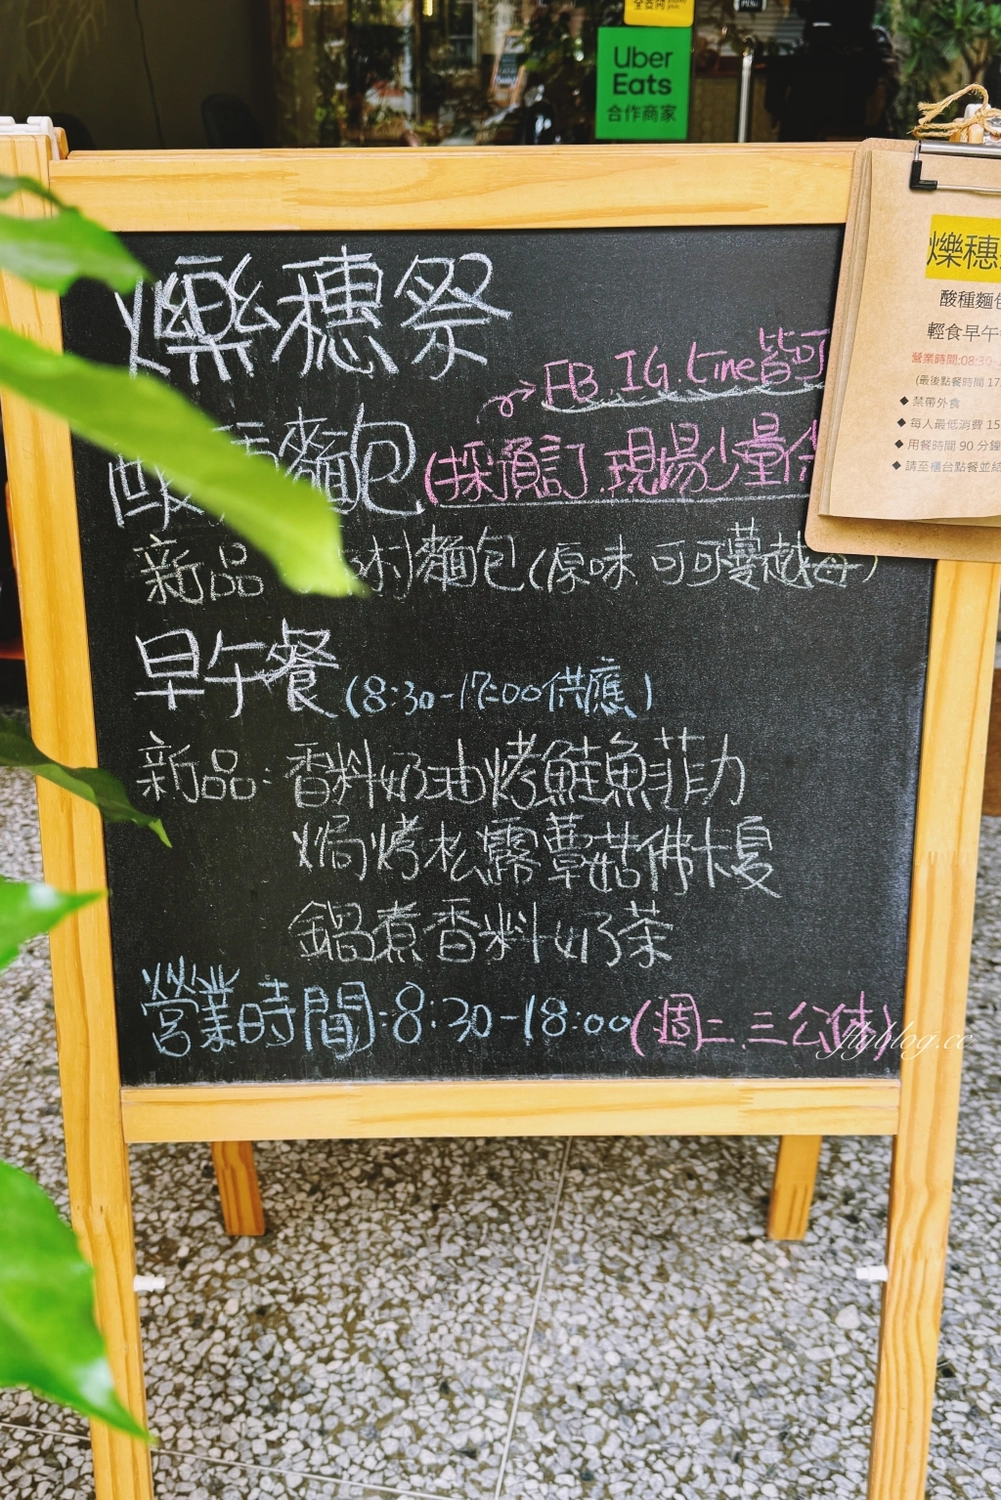 Uber
Eats
合作商家
爍穗祭
FB.IG.Line皆可
酸種麵包(採預訂.現場少量供
新品 村麵包(原味 可可蔓越莓)
早午餐(8:30-17:00供應)
新品:香料奶油烤鮭魚菲力
焗烤松露蕈菇佛卡夏
鍋煮香料奶茶
營業時間:8:30-18:00(週二.三公休)
爍穗
酸種麵包
輕食早午
營業時間:08:30-
(最後點餐時間 17
◆ 禁帶外食
◆ 每人最低消費 15
◆ 用餐時間 90 分鐘
◆ 請至櫃台點餐並結
flyblog.cc